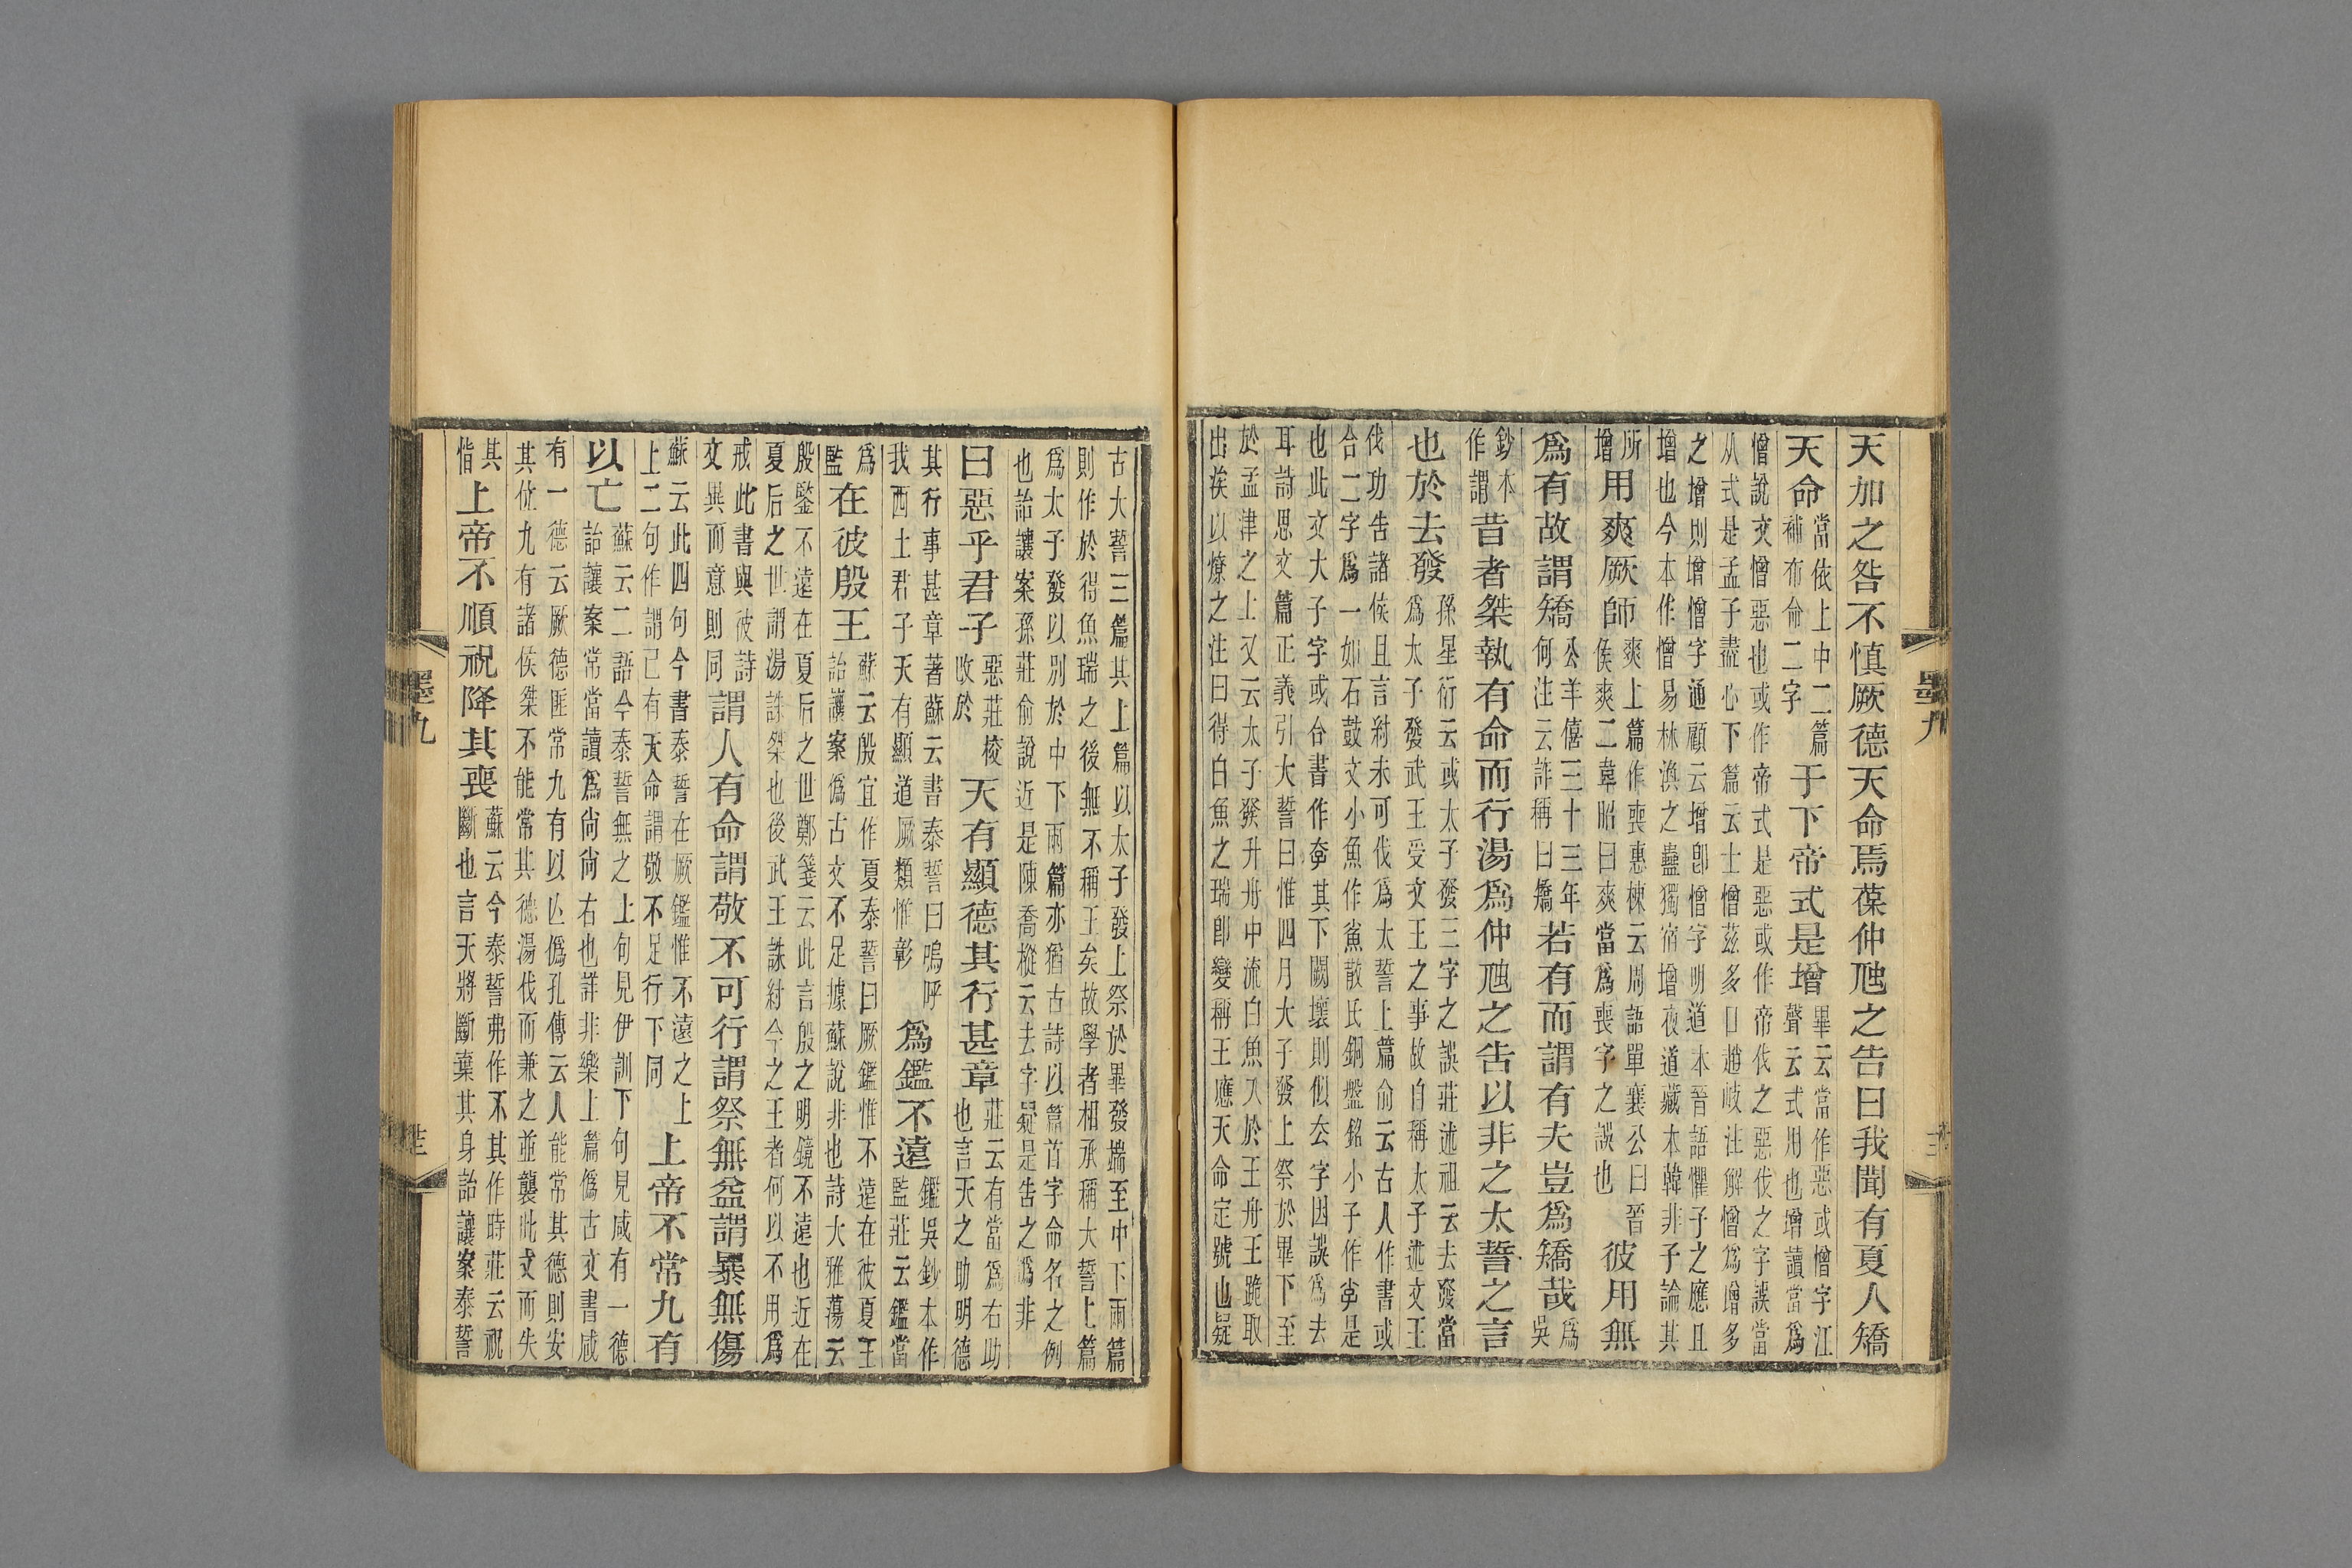 天加之咎不慎厥德天命焉葆仲虺之告曰我聞有夏人矯
天命當依上中二篇補布命二字于下帝式是增畢云當作惡或憎字江聲云式用也增讀當爲
憎說文憎惡也或作帝式是惡或作帝伐之惡伐之字誤當
从式是孟子盡心下篇云士憎茲多口趙岐注解憎爲增多
之增則增憎字通顧云增卽憎字明道本晉語懼子之應且
增也今本作憎易林渙之蠱獨宿增夜道藏本韓非子論其
所增用爽厥師爽上篇作喪惠棟云周語單襄公曰晉侯爽二韋昭曰爽當爲喪字之誤也彼用無
爲有故謂矯公羊僖三十三年何注云詐稱曰矯若有而謂有夫豈爲矯哉爲吳
鈔本作謂昔者桀執有命而行湯爲仲虺之告以非之太誓之言
也於去發孫星衍云或太子發三字之誤莊述祖云去發當爲太子發武王受文王之事故自稱太子述文王
伐功告諸侯且言紂未可伐爲太誓上篇俞云古人作書或
合二字爲一如石鼓文小魚作散氏銅盤銘小子作是
也此文大子字或合書作其下闕壞則似去字因誤爲去
耳詩思文篇正義引大誓曰惟四月大子發上祭於畢下至
於孟津之上又云太子發升舟中流白魚入於王舟王跪取
出涘以燎之注曰得白魚之瑞卽變稱王應天命定號也疑
墨九
古大誓三篇其上篇以太子發上祭於畢發端至中下兩篇
則作於得魚瑞之後無不稱王矣故學者相承稱大誓上篇
爲太子發以別於中下兩篇亦猶古詩以篇首字命名之例
也詒讓案孫莊俞說近是陳喬樅云去字疑是告之譌非
曰惡乎君子惡莊校改於天有顯德其行甚章莊云有當爲右助也言天之助明德
其行事甚章著蘇云書泰誓曰嗚呼我西土君子天有顯道厥類惟彰爲鑑不遠鑑吳鈔本作監莊云鑑當
爲監在彼殷王蘇云殷宜作夏泰誓曰厥鑑惟不遠在彼夏王詒讓案僞古文不足據蘇說非也詩大雅蕩云
殷鑒不遠在夏后之世鄭箋云此言殷之明鏡不遠也近在
夏后之世謂湯誅桀也後武王誅紂今之王者何以不用爲
戒此書與彼詩文異而意則同謂人有命謂敬不可行謂祭無益謂暴無傷
蘇云此四句今書泰誓在厥鑑惟不遠之上上二句作謂己有天命謂敬不足行下同上帝不常九有
以亡蘇云二語今泰誓無之上句見伊訓下句見咸有一德詒讓案常當讀爲尚尚右也詳非樂上篇僞古文書咸
有一德云厥德匪常九有以亡僞孔傳云人能常其德則安
其位九有諸侯桀不能常其德湯伐而兼之並襲此文而失
其恉上帝不順祝降其喪蘇云今泰誓弗作不其作時莊云祝斷也言天將斷棄其身詒讓案泰誓
墨九